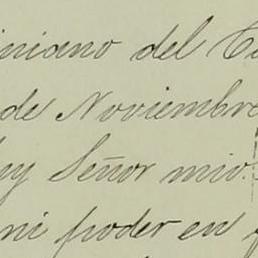 iniano del C
de Noviembre
ey Señor mio.
mi poder en